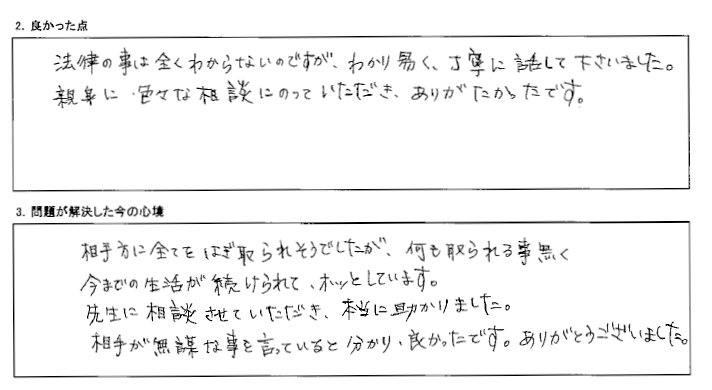 2. 良かった点
法律の事は全くわからないのですが、わかり易く、丁寧に話して下さいました。
親身に色々な相談にのっていただき、ありがたかったです。
3. 問題が解決した今の心境
相手方に全てをはぎ取られそうでしたが、何も取られる事無く
今までの生活が続けられて、ホッとしています。
先生に相談させていただき、本当に助かりました。
相手が無謀な事を言っていると分かり、良かったです。ありがとうございました。